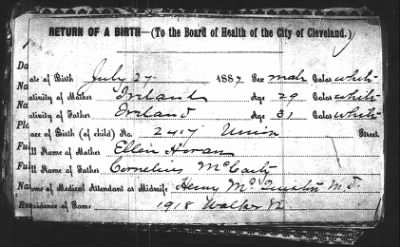 RETURN OF A BIRTH—(To the Board of Health of the City of Cleveland.)
Da
ate of Birth July 27 1887 Sex male Color white
Na
ativity of Mother Ireland Age 29 Color white
Na
ativity of Father Ireland Age 31 Color white
Pl
ace of Birth (of child) No. 2417 Union Street
Fu
ll Name of Mother Ellen Horan
Fu
ll Name of Father Cornelius McCarty
Name of Medical Attendant or Midwife Henry Mc M.D.
Residence of Same 1918